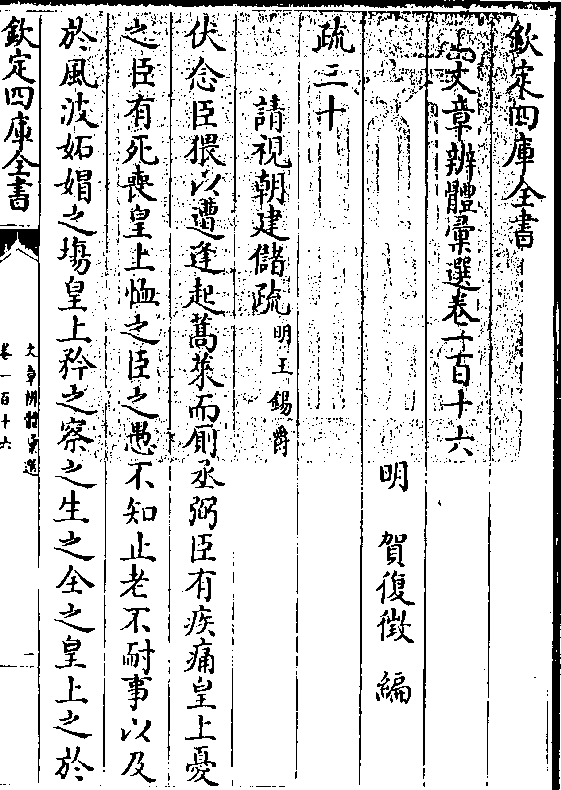 欽定四庫全書
文章辨體彙選卷一百十六
明　賀復徵　編
疏三十
請視朝建儲疏明王錫爵
伏念臣猥以遭逢起蒿萊而厠丞弼臣有疾痛皇上憂
之臣有死喪皇上恤之臣之愚不知止老不耐事以及
於風波妬媢之塲皇上矜之察之生之全之皇上之於
欽定四庫全書
文章辨體彙選
卷一百十六
一